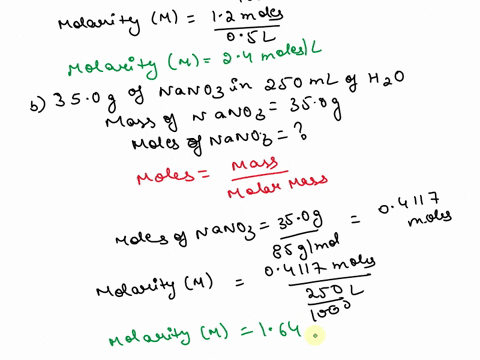 Molarity (M) = 1.2 moles / 0.5 L
Molarity (M) = 2.4 moles/L
b) 35.0g of NaNO3 in 250 mL of H2O
Mass of NaNO3 = 35.0g
Moles of NaNO3 = ?
Moles = Mass / Molar Mass
Moles of NaNO3 = 35.0g / 85g/mol = 0.4117 moles
Molarity (M) = 0.4117 moles / 250/1000 L
Molarity (M) = 1.64